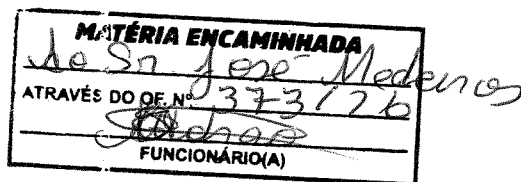 MATÉRIA ENCAMINHADA
Ao Sr José Medeiros
ATRAVÉS DO OF. Nº 373/26
FUNCIONÁRIO(A)